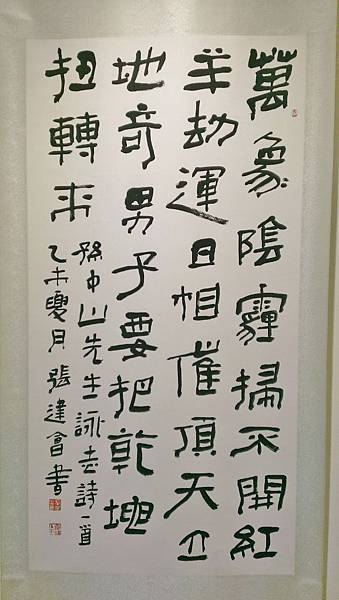 萬象陰霾掃不開紅
羊劫運日相催頂天立
地奇男子要把乾坤
扭轉來
孫中山先生詠志詩一首
乙未夏月張建會書